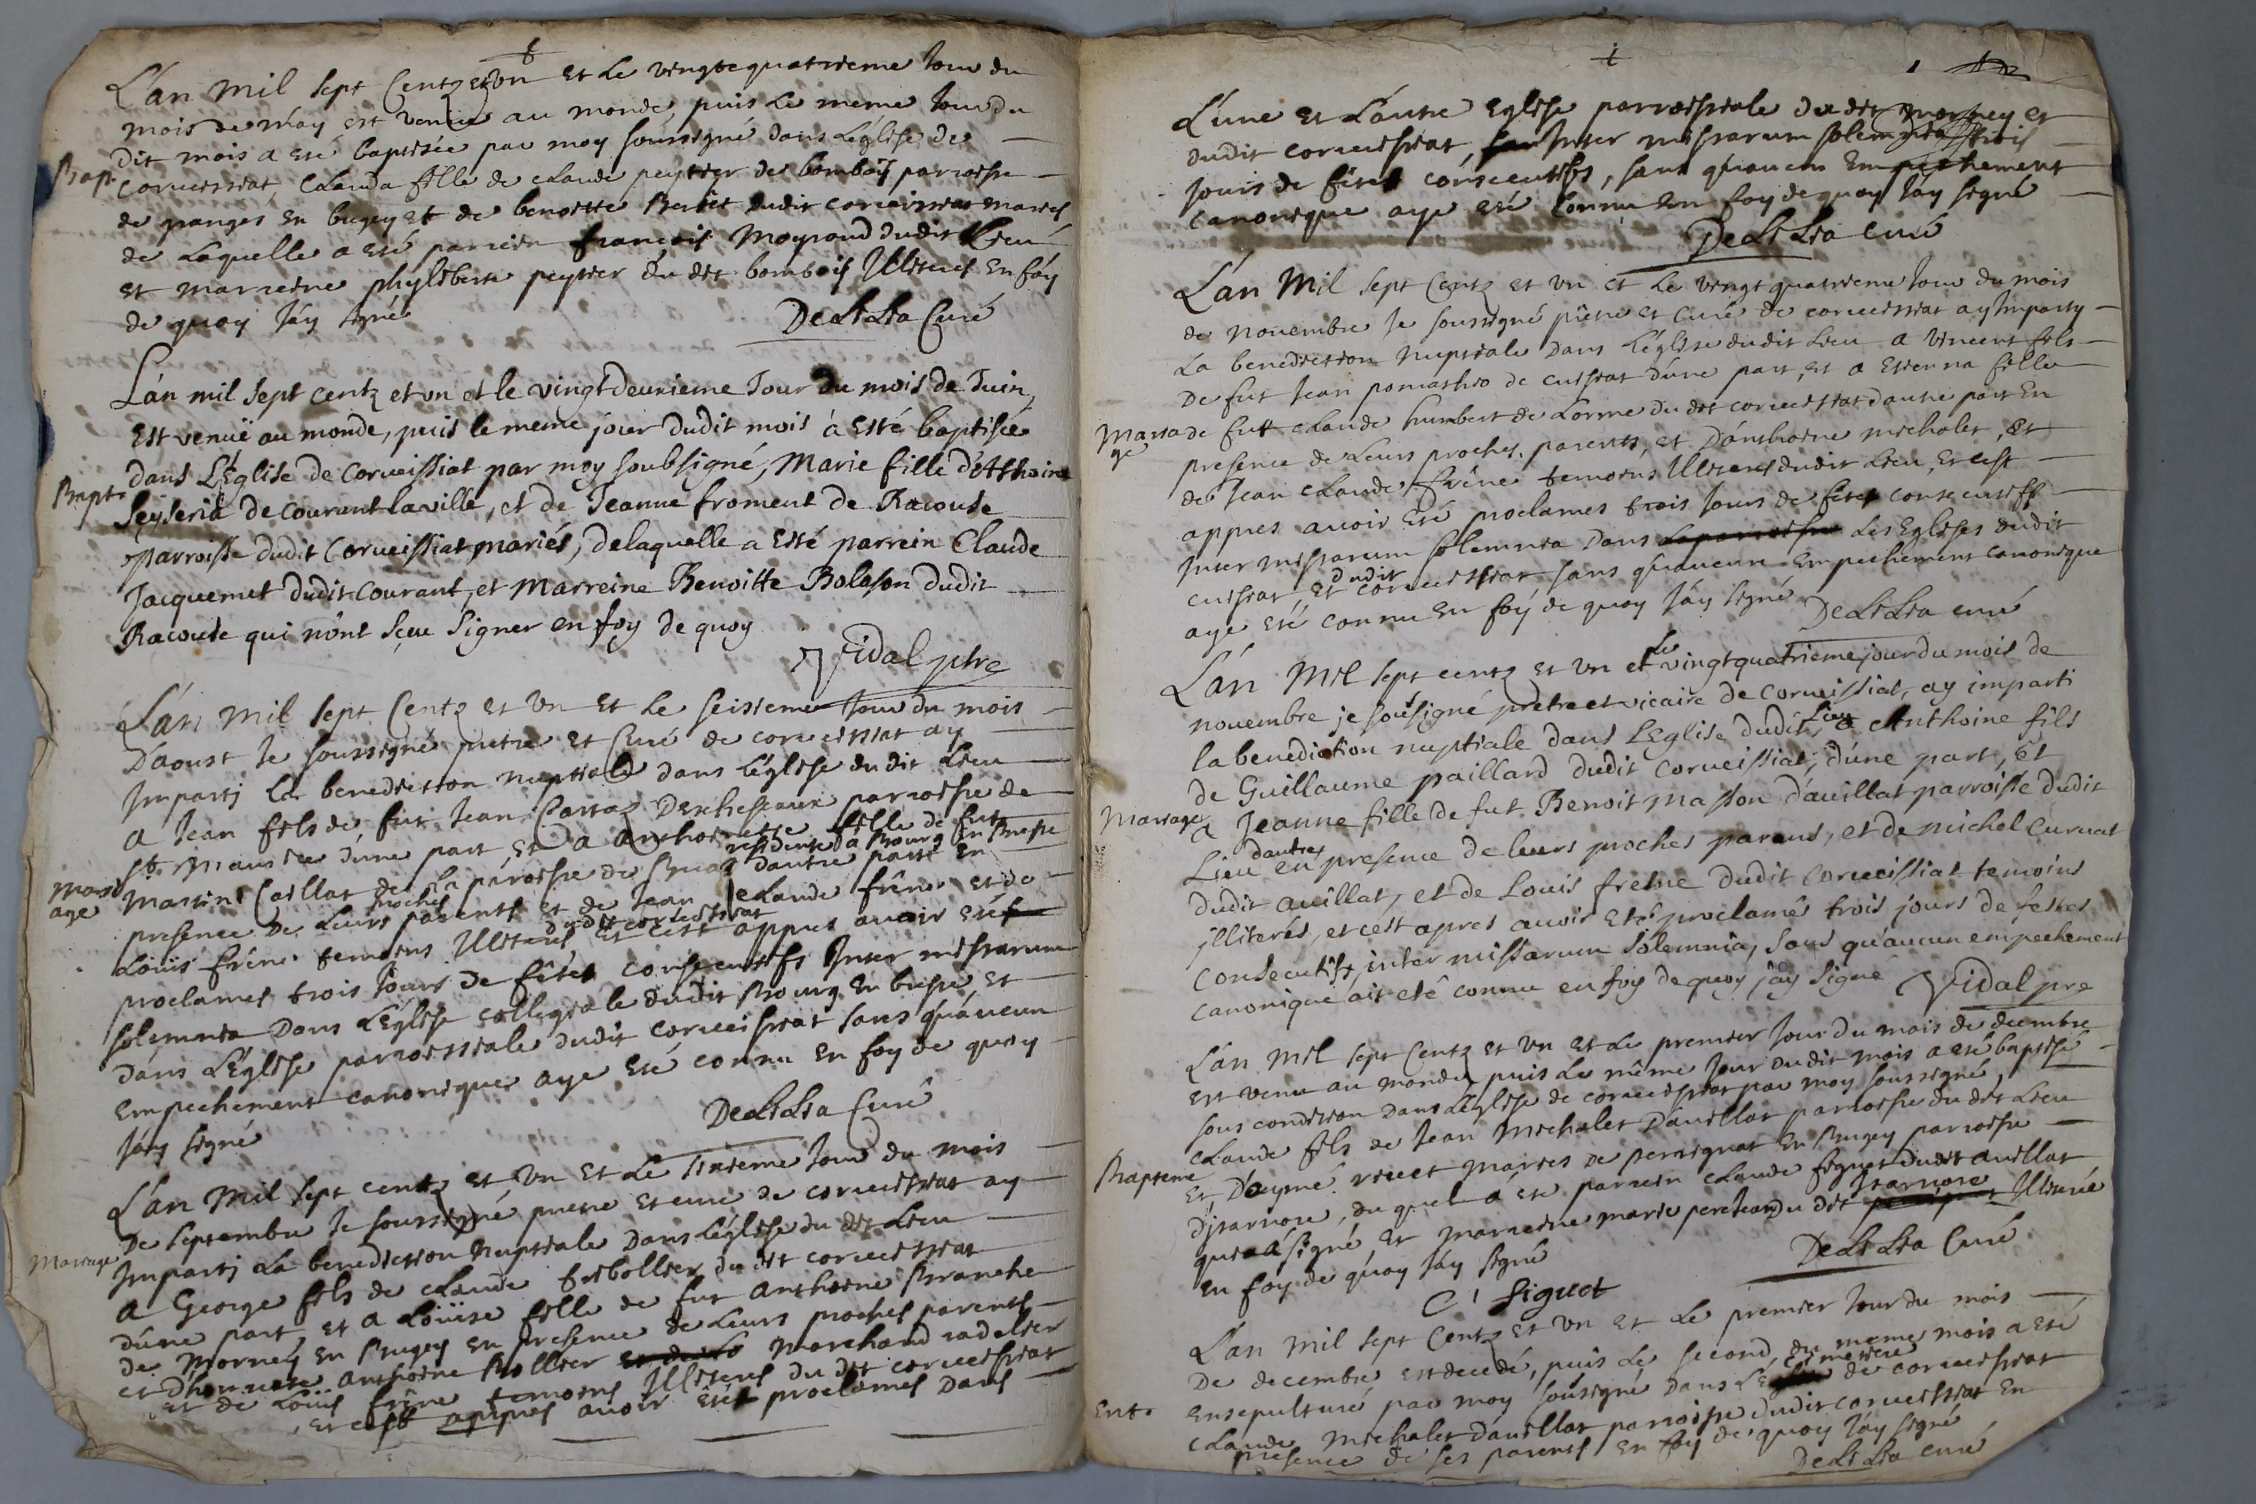 L'an mil sept Centz et un et le vingtequatrieme Jour du
mois de may est venue au monde, puis le meme Jour du
dit mois a esté baptisée par moy soussigné dans L'église de
Bapt.
corveissiat, Clauda fille de claude peytier de bombois parroisse
de granges en bugey et de benoitte Berlie dudit corveissiat mariés
de Laquelle a esté parrein françois Moyroud dudit Lieu
et marreine phylibere peytier du dit bombois Illiterés en foy
de quoy J'ay signé
DeLiLia Curé
L'an mil sept centz et un et le vingt deuxieme Jour du mois de Juin
Est venuë au monde, puis le meme jour dudit mois à Esté baptisée
dans L'Eglise de Corveissiat par moy soubsigné, Marie fille d'Athoine
Bapte
Seyseria de Courant la ville, et de Jeanne froment de Racouse
Parroisse dudit Corveissiat mariés, delaquelle a Esté parrein Claude
Jacquemet dudit Courant, et Marreine Benoitte Boloson dudit
Racouse qui n'ont sçeu signer en foy de quoy
Vidal ptre
L'an mil sept Centz et un et le seisieme Jour du mois
D'aoust Je soussigné pretre et Curé de corveissiat ay
Imparti La benediction nuptiale dans L'église du dit Lieu
A Jean fils de fut Jean Cartaz Descheseaux parroisse de
St. Maurice d'une part, et a anthoinette fille de fut
residente a Bourg en Bresse
Mariage
Martin Caillat de La paroisse de d'autre part en
presence de Leurs proches parents et de Jean Claude frêne et de
Loüis frêne temoins Illiterés dudit corveissiat et c'est appres avoir esté
proclamés trois Jours de fêtes consecutifs Inter missarum
solemnia Dans L'Eglise collegiale dudit Bourg En bresse et
dans L'Eglise parroissiale dudit corveissiat sans qu'aucun
Empechement canonique aye esté connu en foy de quoy
J'ay signé
DeLiLia Curé
L'an Mil sept centz et un et le sixieme Jour du mois
De septembre Je soussigné pretre et curé de corveissiat ay
Mariage
Imparti La benediction nuptiale Dans L'église du dit Lieu
A George fils de claude tribollier du dit corveissiat
d'une part, et a Loüise fille de fut Anthoine Branche
de Mornay En Bugey En presence de Leurs proches parents
et D'honnete anthoine Bollier Marchand radelier
et de Loüis frêne temoins Illiterés du dit corveissiat
et c'est appres avoir Esté proclamés Dans
L'une et L'autre Eglise parroissiale du dit Mornay et
dudit corveissiat, Inter missarum solemnia trois
jours de fêtes consecutifs, sans qu'aucun Empechement
canonique aye esté connu En foy de quoy J'ay signé
DeLiLia curé
L'an Mil sept Centz et un et le vingt quatrieme Jour du mois
de novembre Je soussigné pretre et curé de corveissiat ay Imparty
La benediction nuptiale Dans L'église dudit Lieu a Vincent fils
De fut Jean pomathio de cuisiat d'une part, et a Etienna fille
Mariage
de fut claude humbert de Lorme du dit corveissiat d'autre part En
presence de Leurs proches parents, et D'anthoine michalet, et
de Jean claude frêne temoins Illiterés dudit Lieu, et c'est
appres avoir Esté proclamés trois Jours de fêtes consecutifs
Inter missarum solemnia Dans les Eglises dudit
cuisiat et dudit corveissiat sans qu'aucun Empechement canonique
aye esté connu En foy de quoy J'ay signé
DeLiLia curé
L'an Mil sept centz et un et Le vingtquatrieme jour du mois de
novembre je sousigné prêtre et vicaire de Corveissiat, ay imparti
la benediction nuptiale dans L'Eglise dudit Lieu a Anthoine fils
de Guillaume paillard dudit Corveissiat, d'une part, et
Mariage
a Jeanne fille de fut Benoit Masson d'avillat parroisse dudit
Lieu d'autre en presence de leurs proches parens, et de michel Curvat
dudit avillat, et de Louis fresne dudit Corveissiat temoins
jlliterés, et c'est apres avoir Esté proclamés trois jours de festes
Consecutifs, inter missarum solemnia, sans qu'aucun empechement
canonique ait eté connu en foy de quoy j'ay signé
Vidal pre
L'an mil sept Centz et un et Le premier Jour du mois de decembre
est venu au monde, puis Le même Jour du dit mois a esté baptisé
sous condition Dans L'église de corveissiat par moy soussigné
claude fils de Jean Michalet D'avillat parroisse du dit Lieu
Bapteme
et D'aymé mariés de pernignat En Bugey parroisse
D'jzarnore, du quel a esté parrein claude figuet dudit avillat
qui a signé, et marreine marie perelean du dit Izarnore Illiterée
En foy de quoy J'ay signé
DeLiLia Curé
C. figuet
L'an mil sept Centz et un et Le premier Jour du mois
De decembre est decedé, puis Le second du meme mois a esté
Ent.
ensepulturé par moy sousigné Dans Le cimetiere de corveissiat
claude Michalet D'avillat parroisse dudit corveissiat En
presence de ses parents En foy de quoy J'ay signé
DeLiLia curé